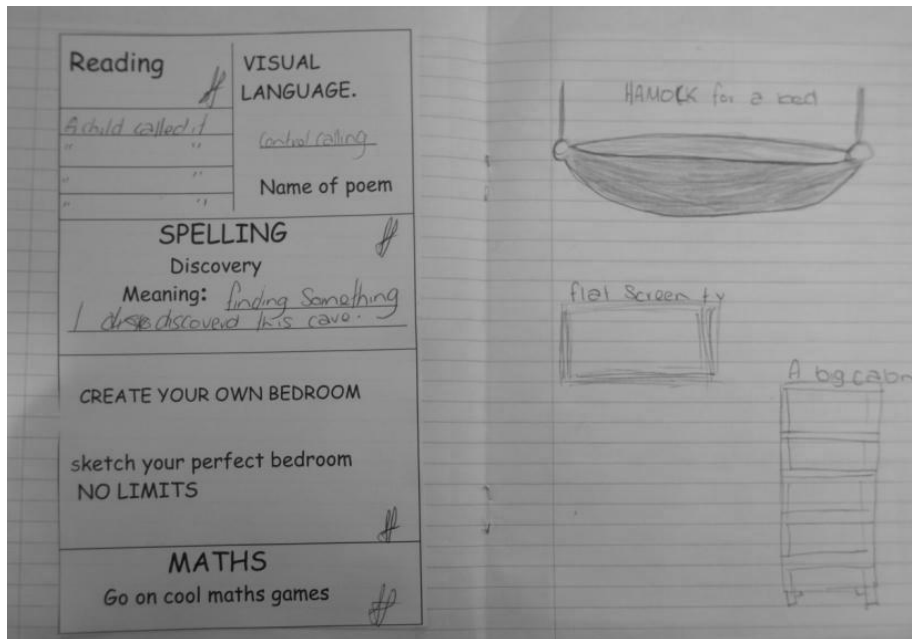 Reading
A child called it
" "
" "
" "
VISUAL
LANGUAGE.
Control calling
Name of poem
SPELLING
Discovery
Meaning: finding Something
I discoverd this cave.
CREATE YOUR OWN BEDROOM
sketch your perfect bedroom
NO LIMITS
MATHS
Go on cool maths games
HAMOCK for a bed
flat Screen tv
A big